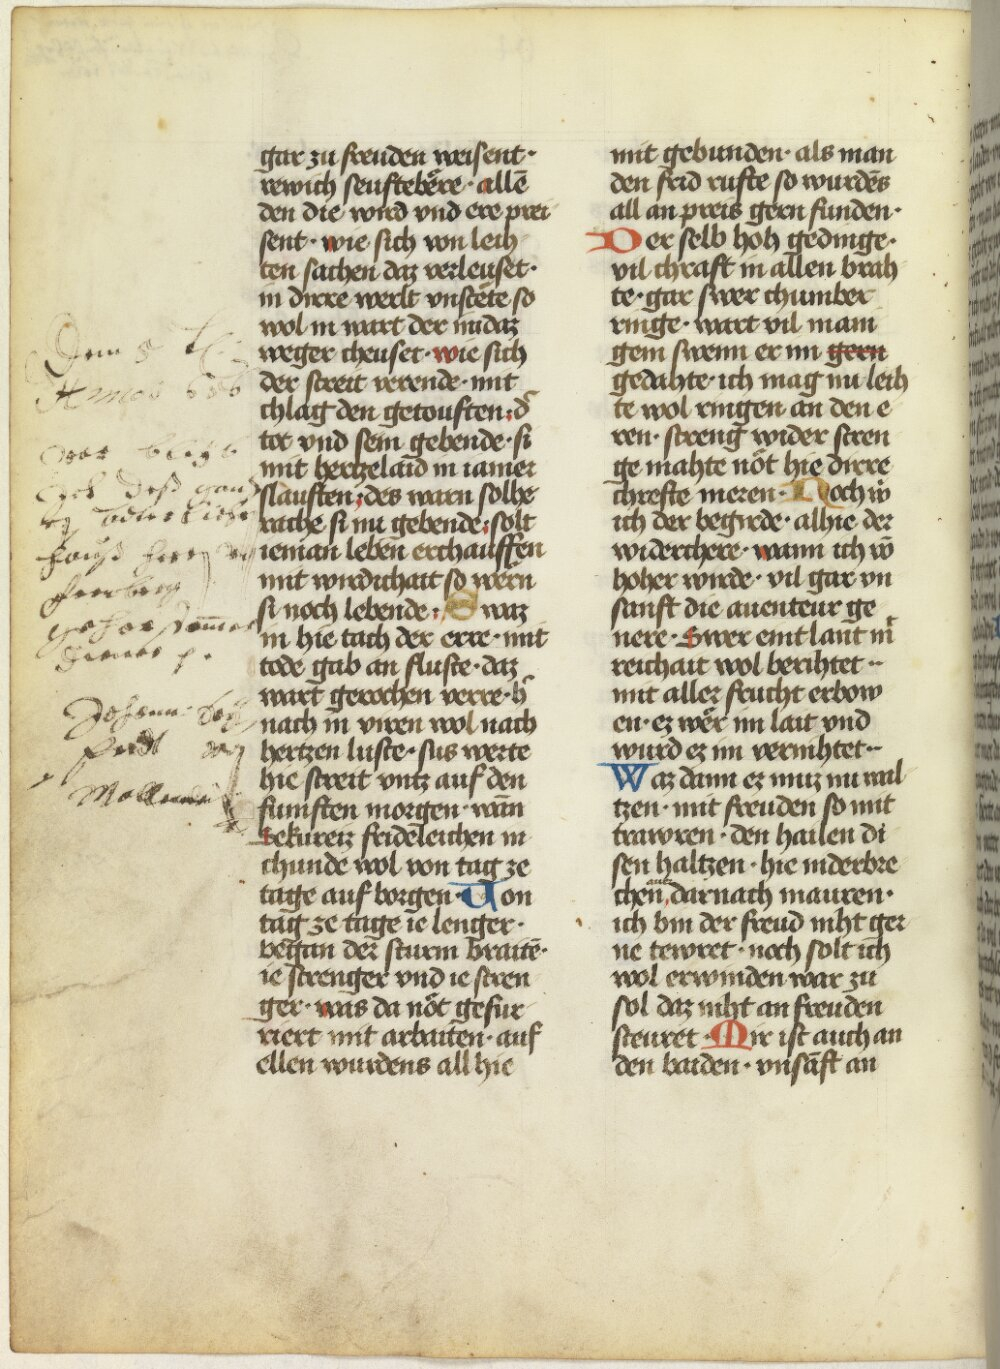 gar zu freuden weisent·
rewich seuftebere· allē
den die wird vnd ere prei
sent· wie sich von leich
ten sachen daz verleuset·
in dirre werlt vnstete so
wol in wart der in daz
weger cheuset· wie sich
der streit verende· mit
chlag den getouften; d̄
tot vnd sein gebende· si
mit hertzelaid in iamer
slauften; des warn solhe
rache si nu gebende; solt
ieman leben erchauffen
mit wirdichait so wern
si noch lebende; Swaz
in hie tach der erre· mit
tode gab an fluste· daz
wart gerochen verre· h̄
nach in viren wol nach
hertzen luste· sus werte
hie streit vntz auf den
fumften morgen· wan
sekureiz frideleichen in
chunde wol von tag ze
tage auf borgen· Von
tag ze tage ie lenger·
began der sturm braitē·
ie strenger vnd ie stren
ger· was da nőt gefur
riert mit arbaiten· auf
ellen wurdens all hie
mit gebunden· als man
den frid rufte so wurdēs
all an preis gern funden·
Der selb hoh gedinge·
vil chraft in allen brah
te· gar swer chumber
ringe· wart vil mani
gem swenn er im gern
gedahte· ich mag nu leih
te wol ringen an den e
ren· streng wider stren
ge mahte nőt hie dirre
chrefte meren· Noch w̄
ich der begirde· alhie der
widerchere· wann ich w̄
hoher wirde· vil gar vn
sanft die auenteur ge
nere· Swer eint lant in̄
reichait wol berihtet··
mit aller frucht erbow
en· ez wer im lait vnd
wurd ez im vernihtet··
Waz dann ez muz nu wal
tzen· mit freuden so mit
trawren· den hailen di
sen haltzen· hie niderbre
chen, darnach mauren·
ich bin der freud niht ger
ne tewret· noch solt ich
wol erwinden war zu
sol daz niht an freuden
steuret· Mir ist auch an
den baiden· vnsanft an